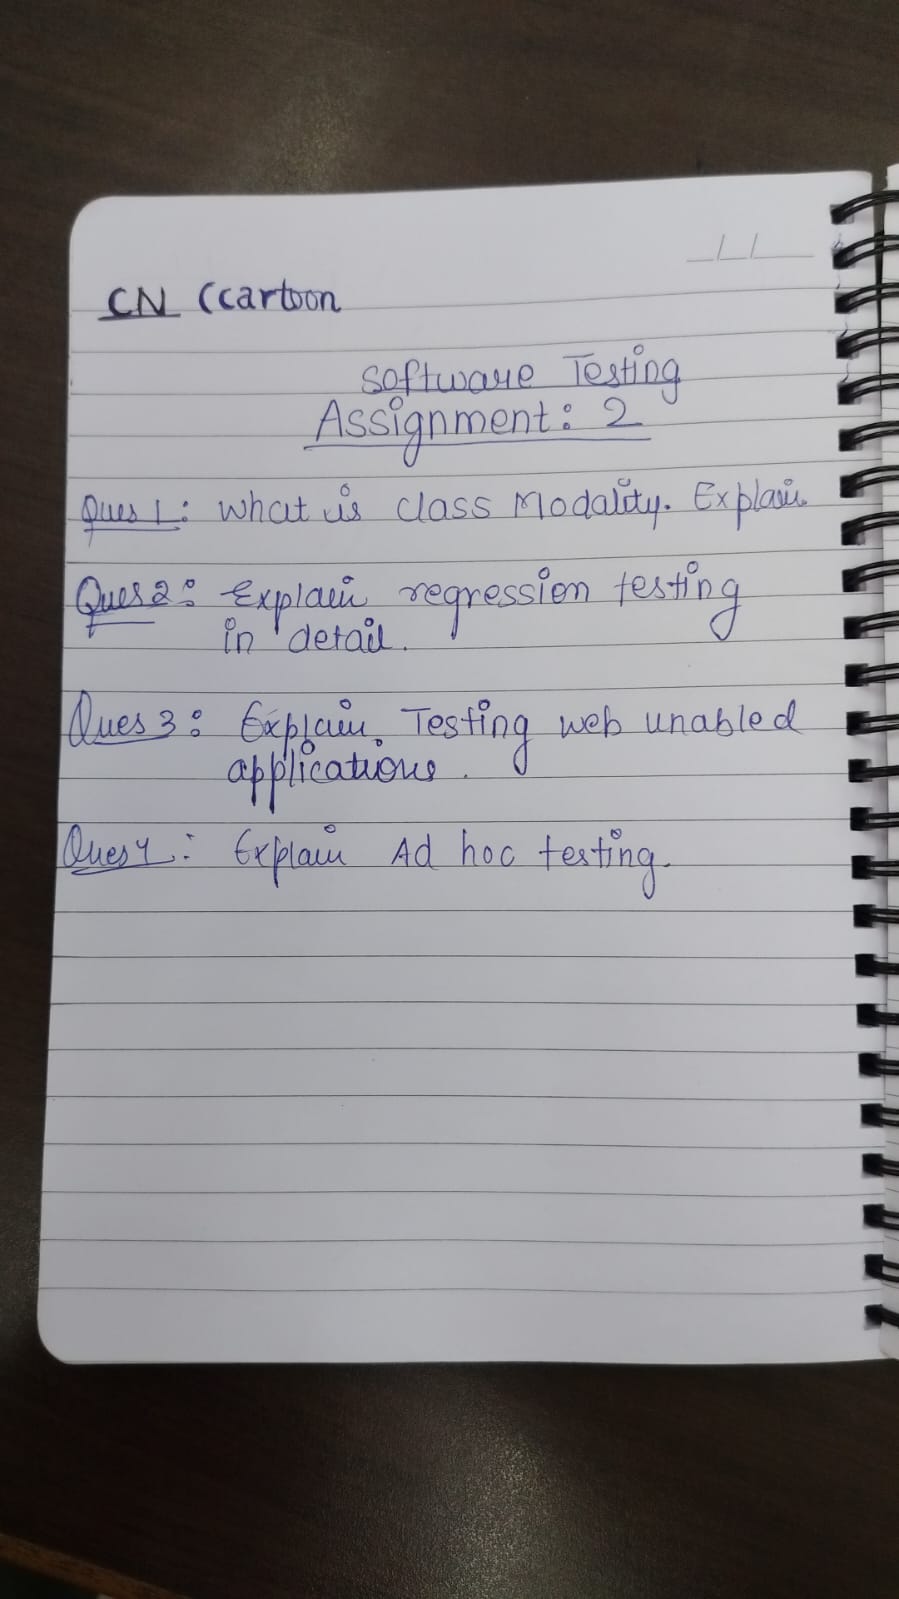 CN (cartoon
Software Testing
Assignment: 2
Ques 1: What is class Modality. Explain
Ques 2: Explain regression testing
in detail.
Ques 3: Explain Testing web unabled
applications.
Ques 4: Explain Ad hoc testing.